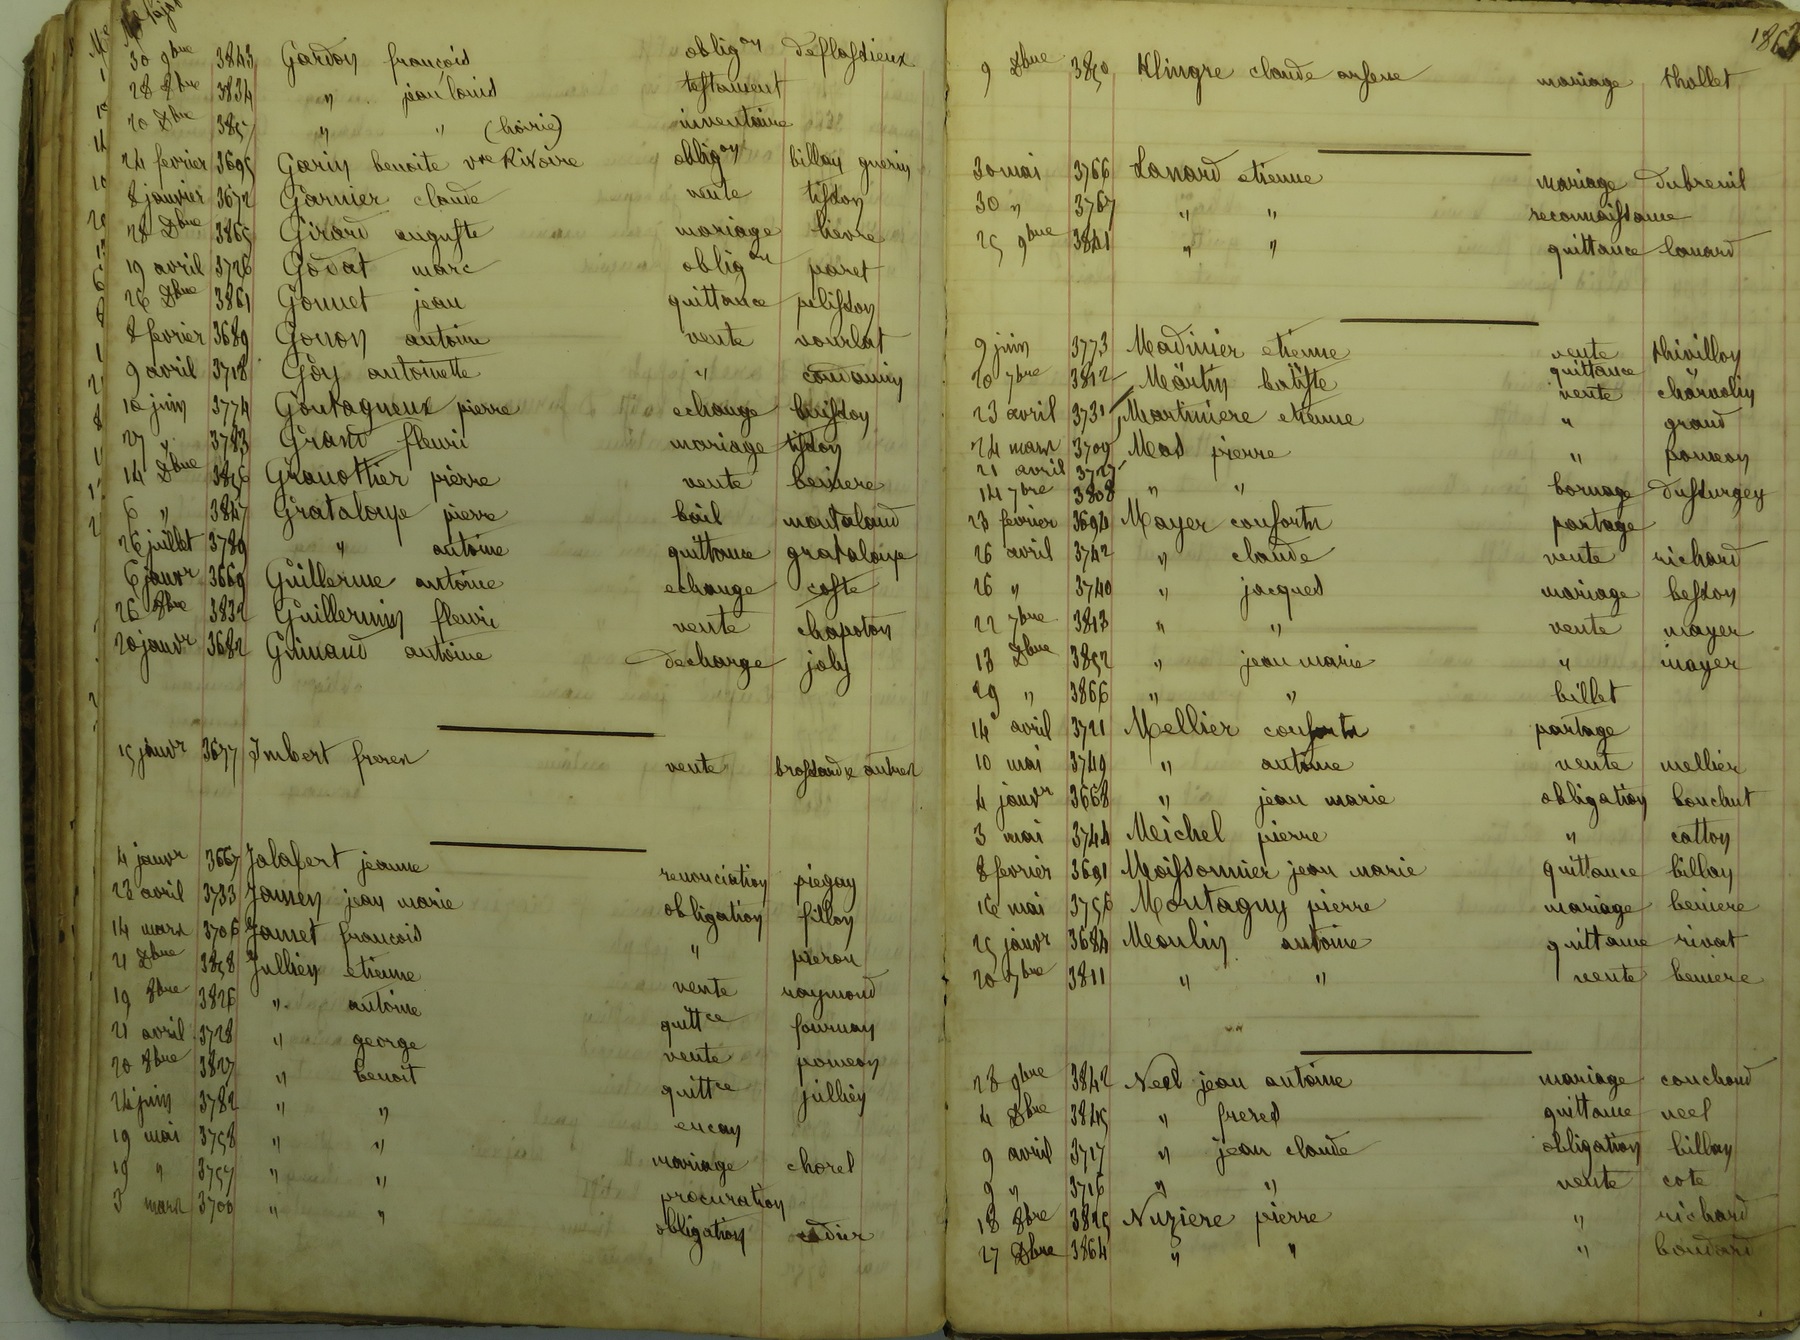 30 9bre 3843 Gardon françois oblig on deflassieux
28 8bre 3834 " jean louis testament
20 Xbre 385 " " (hoirie) inventaire
24 fevrier 3695 Garin benoite vve Rivoire oblig on billay guerin
8 janvier 3672 Garnier claude vente tisson
28 Xbre 3865 Girard auguste mariage lievre
19 avril 3726 Godat marc oblig on paret
26 Xbre 3861 Gonnet jean quittance pelisson
8 fevrier 3689 Gonon antoine vente vourlat
9 avril 3718 Goy antoinette "
10 juin 3774 Goutagneux pierre echange buisson
27 " 3783 Grand fleuri mariage tisson
14 Xbre 3856 Granottier pierre vente beniere
6 " 3847 Grataloupe pierre bail montaland
26 juillet 3789 " antoine quittance grataloupe
6 janvr 3669 Guillerme antoine echange coste
26 8bre 3832 Guillermin fleuri vente chapoton
20 janvr 3682 Grimaud antoine decharge joly
15 janvr 3677 Imbert freres vente brossard & autres
4 janvr 3667 Jalabert jeanne renonciation piegay
23 avril 3733 Jamen jean marie obligation fillon
14 mars 3706 Jamet francois " pieron
21 Xbre 3858 Jullien etienne vente raymond
19 8bre 3826 " antoine quittce fournay
21 avril 3728 " george vente pomeon
20 8bre 3827 " benoit quittce jullien
24 juin 3782 " " encan
19 mai 3758 " " mariage chorel
19 " 3757 " " procuration
3 mars 3700 " " obligation
1863
9 Xbre 3850 Klingre claude arsene mariage thollet
30 mai 3766 Lanard etienne mariage dubreuil
30 " 3767 " " reconnaissance
25 9bre 3841 " " quittance lanard
9 juin 3773 Madinier etienne vente thivillon
20 7bre 3812 Martin batiste quittance
vente charvolin
23 avril 3731 Martiniere etienne " grand
24 mars 3709 Mas pierre " pomeon
21 avril 3727
14 7bre 3808 " " bornage dussurgey
23 fevrier 3694 Mayer consorts partage
26 avril 3742 " claude vente richard
26 " 3740 " jacques mariage besson
22 7bre 3813 " " vente mayer
13 Xbre 3852 " jean marie " mayer
29 " 3866 " " billet
14 avril 3721 Mellier consorts partage
10 mai 3749 " antoine vente mellier
4 janvr 3668 " jean marie obligation bouchut
3 mai 3744 Meichel pierre " catton
8 fevrier 3691 Moissonnier jean marie quittance billay
16 mai 3756 Montagny pierre mariage beniere
25 janvr 3684 Moulin antoine quittance rivat
20 7bre 3811 " " vente beniere
28 9bre 3842 Neel jean antoine mariage couchoud
4 Xbre 3845 " freres quittance neel
9 avril 3717 " jean claude obligation billay
9 " 3716 " " vente cote
18 8bre 3825 Nuziere pierre " richard
27 Xbre 3864 " " " boudard